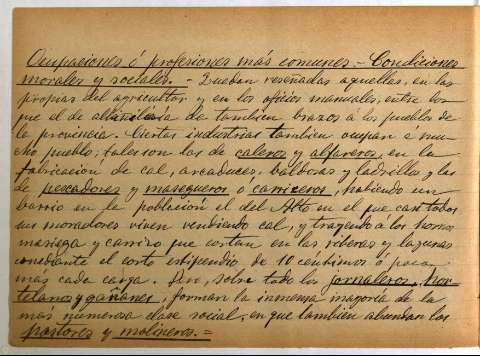 Ocupaciones ó profesiones más comunes.- Condiciones
morales y sociales.- Quedan reseñadas aquellas, en las
propias del agricultor y en los oficios manuales, entre los
que el de albañilería da también brazos á los pueblos de
la provincia. Ciertas industrias también ocupan á mu-
cho pueblo; tales son las de caleros y alfareros, en la
fabricación de cal, arcaduces, baldosas y ladrillos y las
de pescadores y masegueros ó carriceros, habiendo un
barrio en la población el del Alto en el que casi todos
sus moradores viven vendiendo cal, y trayendo á los hornos
masiega y carrizo que cortan en las riberas y lagunas
mediante el corto estipendio de 10 céntimos ó poco
más cada carga. Pero, sobre todo los jornaleros, hor-
telanos y gañanes, forman la inmensa mayoría de la
más numerosa clase social, en que también abundan los
pastores y molineros.=